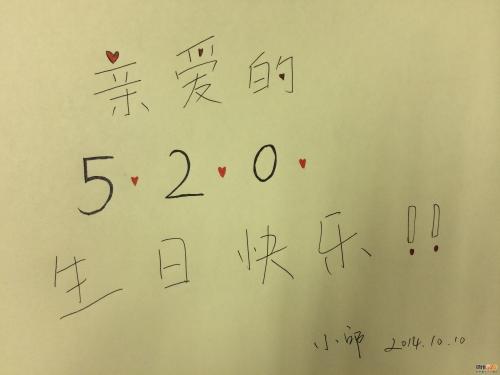 亲爱的
5.2.0.
生日快乐!!
小师 2014.10.10